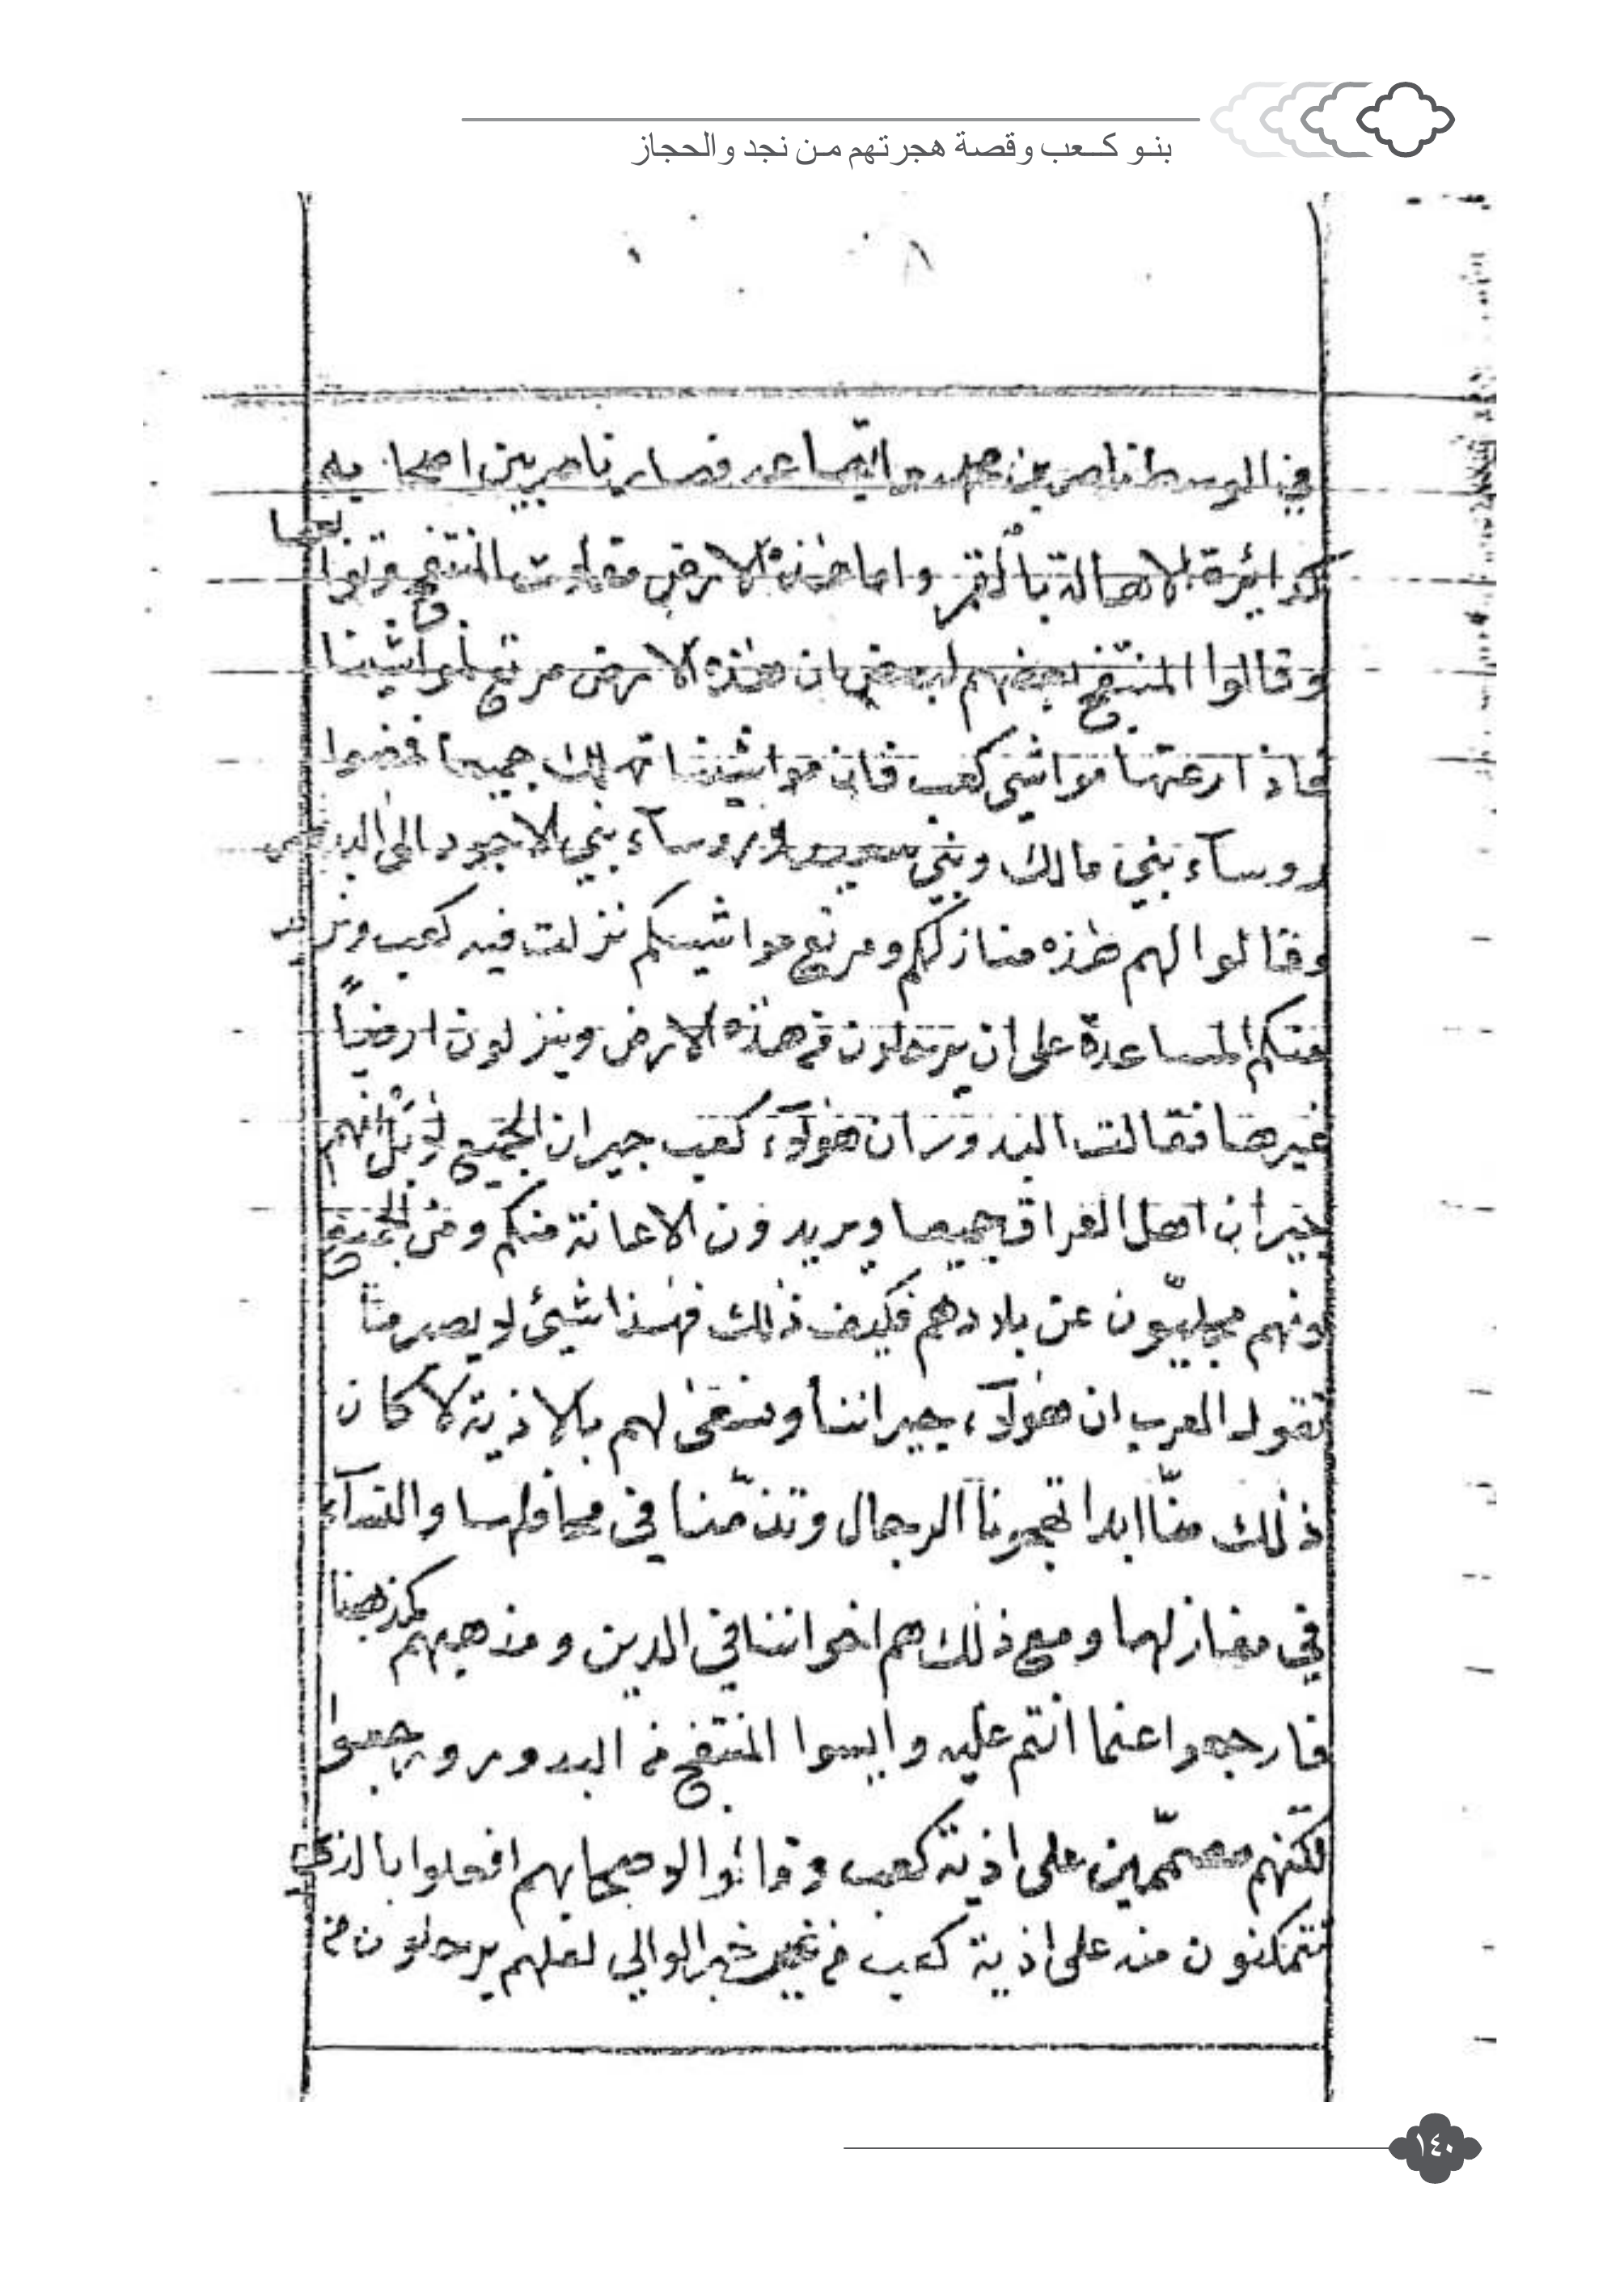 بنو كعب وقصة هجرتهم من نجد والحجاز
في الوسط ناصر بن مهد فصار ناصر بين اصحابه
كدائرة الاهالة بالقمر واما هذه الارض المنتفج
وقالوا المنتفج بعضهم لبعض ان هذه الارض مرتع لمواشينا
فاذا رعتها مواشي كعب فان مواشينا تهلك جميعا فمضوا
روسآء بني مالك وبني سعيد وروسآء بني الاجود الى البدور
وقالوا لهم هذه منازلكم ومرتع مواشيكم نزلت فيه كعب ونريد
منكم المساعدة على ان يرحلون من هذه الارض وينزلون ارضاً
غيرها فقالت البدور ان هؤلآء كعب جيران الجميع لا بل انهم
جيران اهل العراق جميعا ويريدون الاعانة منكم ومن الجميع
ونهم مجليّون عن بلادهم فكيف ذلك فهذا شيئ لا يصير منا
تقول العرب ان هؤلآء جيراننا ونسعى لهم بالاذية لا كان
ذلك منّا ابدا تهجرنا الرجال وتذمّنا في محافلها والنسآء
في مغازلها ومع ذلك هم اخواننا في الدين ومذهبهم كمذهبنا
فارجعوا عنما انتم عليه وايسوا المنتفج من البدور ورجعوا
لكنهم مصمّمين على اذية كعب وقالوا لاصحابهم افعلوا بالذي
تتمكنون منه على اذية كعب من غير خبر الوالي لعلهم يرحلون من
١٤٠